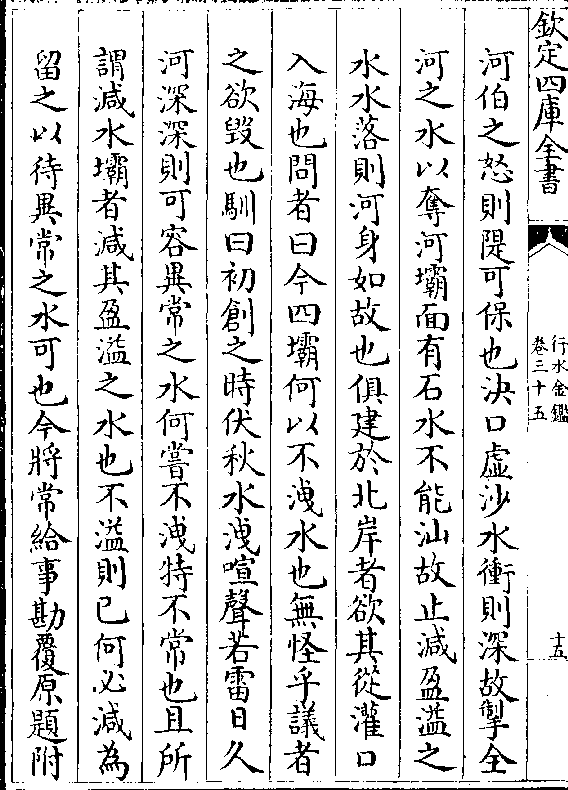 欽定四庫全書
行水金鑑
卷三十五
十五
河伯之怒則隄可保也決口虛沙水衝則深故掣全
河之水以奪河壩面有石水不能汕故止減盈溢之
水水落則河身如故也俱建於北岸者欲其從灌口
入海也問者曰今四壩何以不洩水也無怪乎議者
之欲毀也馴曰初創之時伏秋水洩喧聲若雷日久
河深深則可容異常之水何嘗不洩特不常也且所
謂減水壩者減其盈溢之水也不溢則已何必減為
留之以待異常之水可也今將常給事勘覆原題附